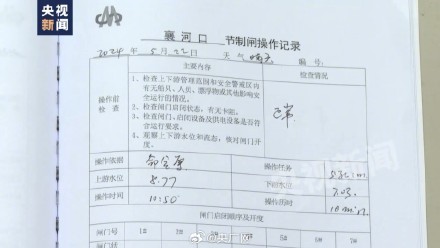 央视新闻
襄河口 节制闸操作记录
2024年5月22日 天气 晴 编号：
主要内容 检查情况
操作前检查
1、检查上下游管理范围和安全警戒区内有无船只、人员、漂浮物或其他影响安全运行的情况。
2、检查闸门启闭状态，有无卡阻。
3、检查闸门、启闭设备及供电设备是否符合运行要求。
4、观察上下游水位和流态，核对闸门开度。
正常
操作依据 操作任务
上游水位 8.77 下游水位 7.03
操作时间 10:50 操作历时 10 min
闸门启闭顺序及开度
闸门号 1# 2# 5# 6# 7#
央视新闻
@央广网